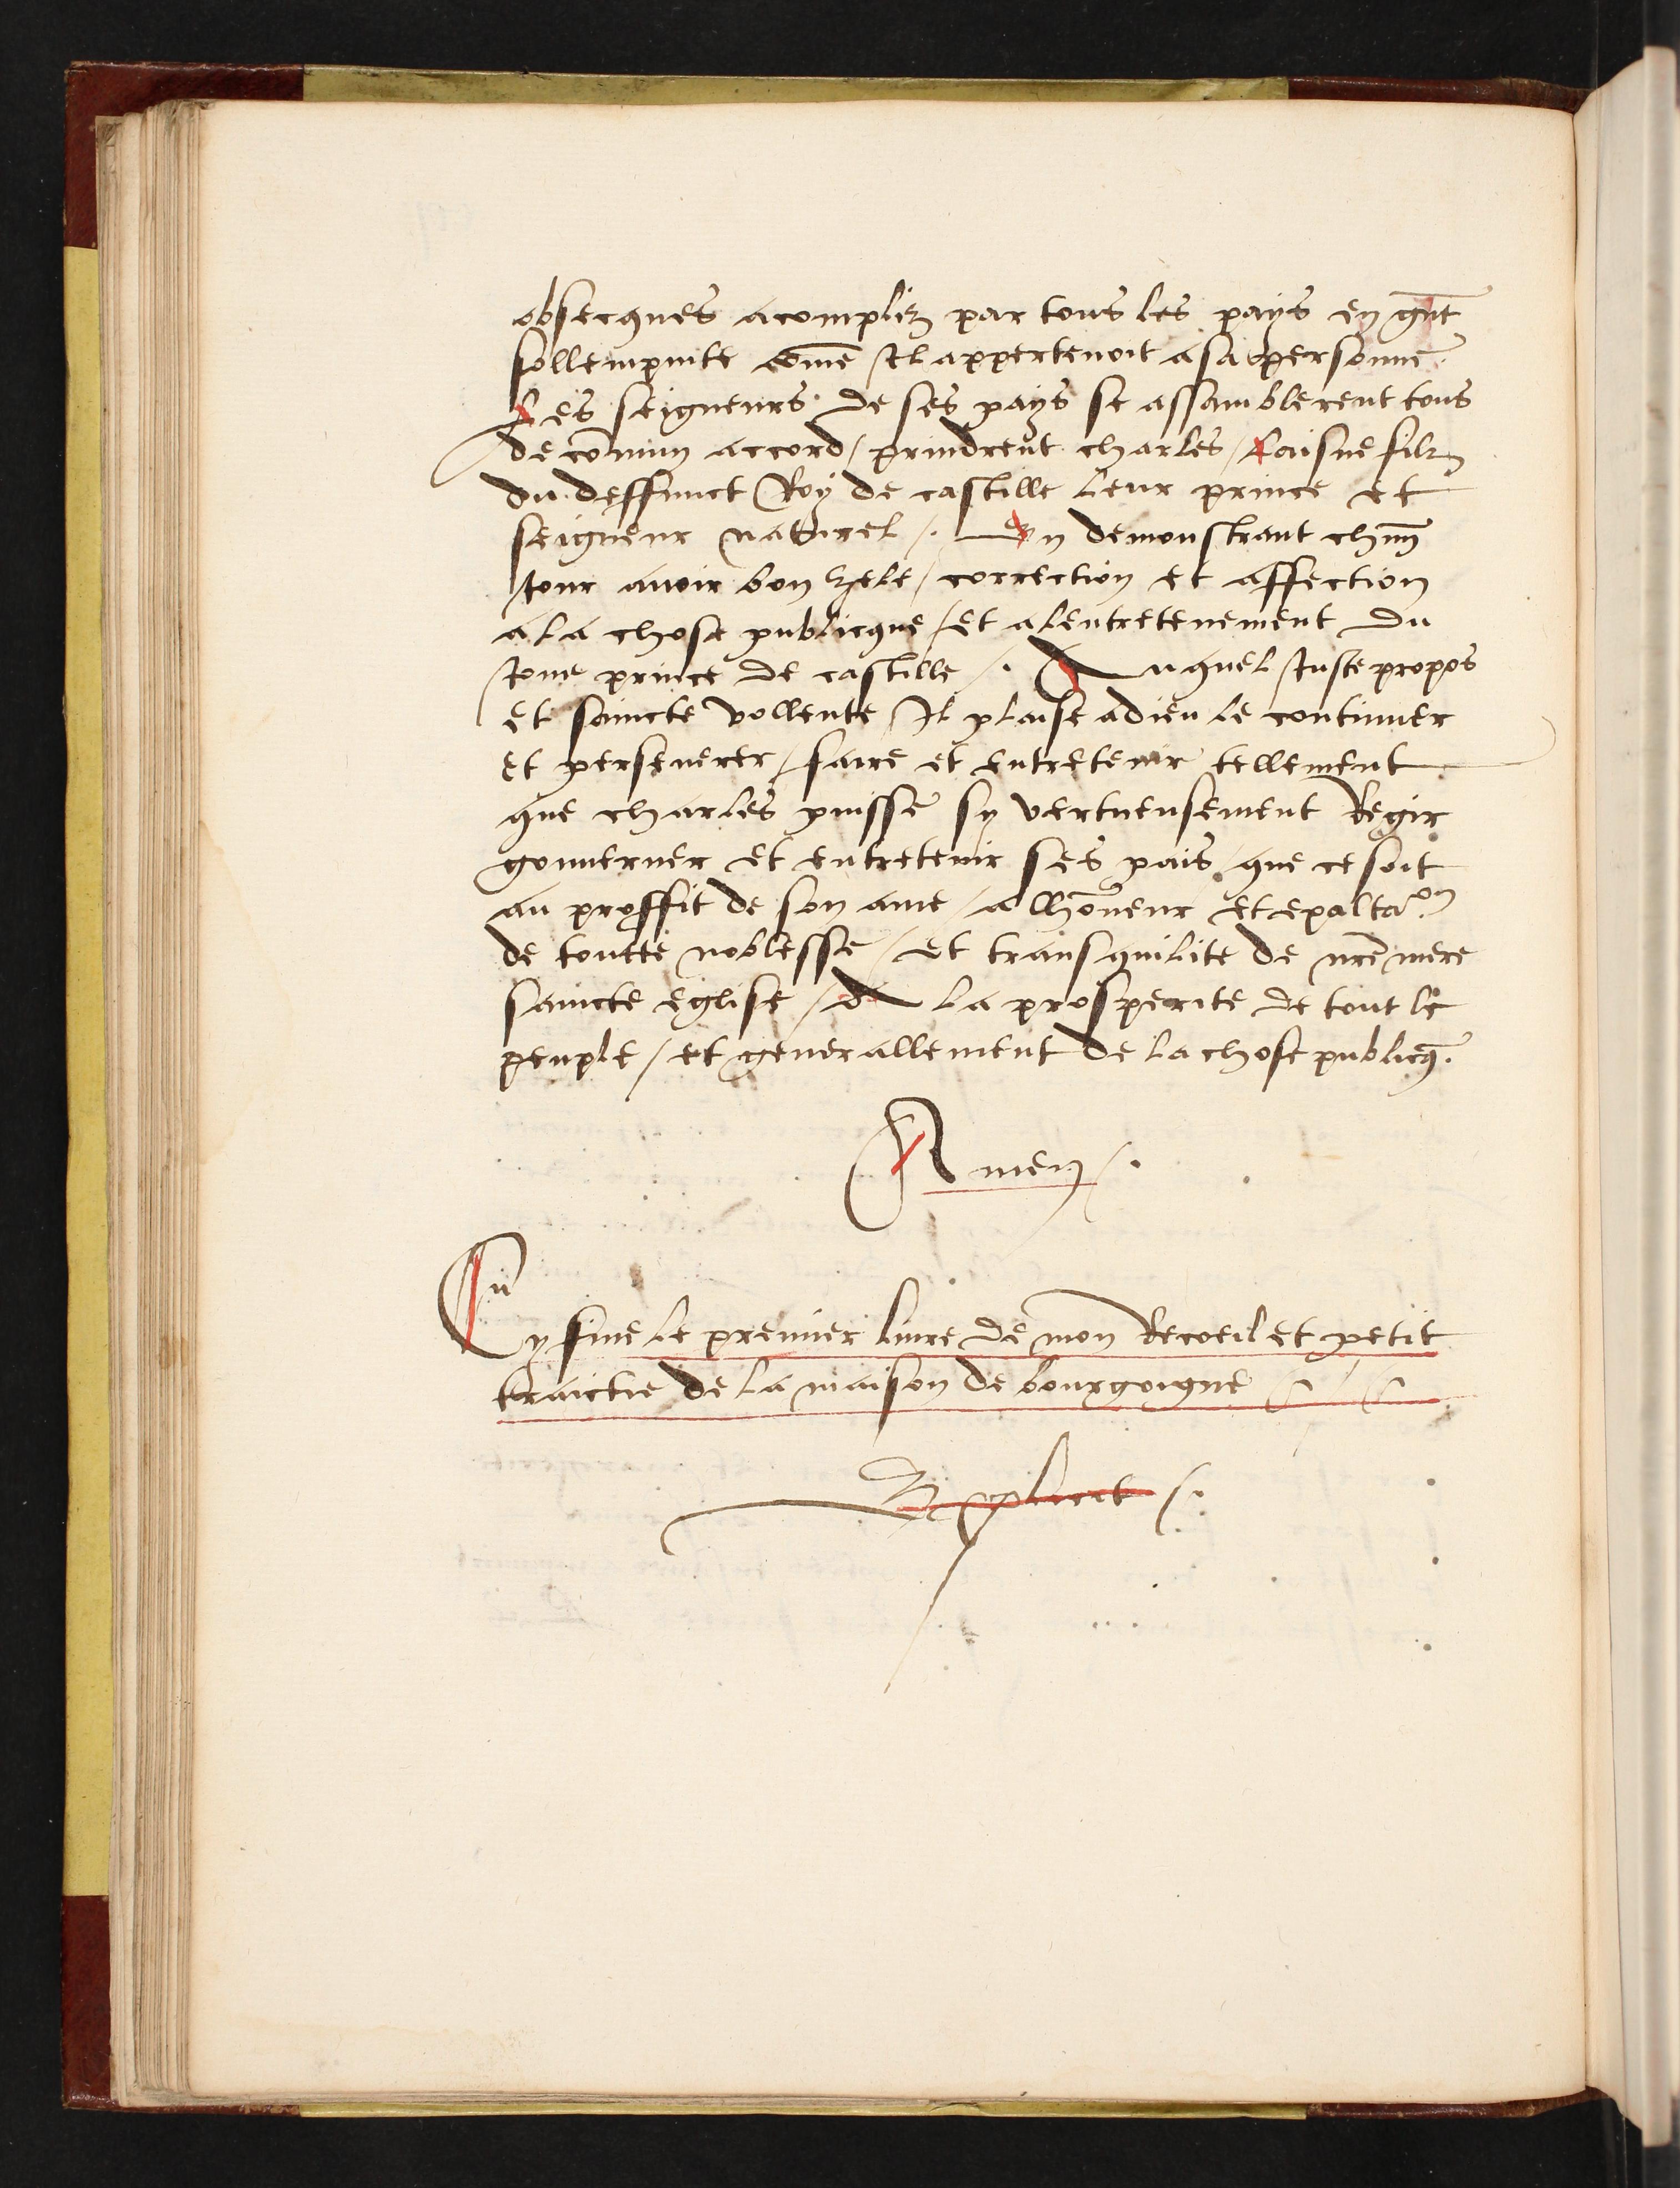 obsecques acompliz par tous les pays en grāt
sollempnite cōme Il appertenoit a sa personne.
Les seigneurs de ses pays se assamblerent tous
de cōmun accord / prindrent charles / laisne filz
du deffunct Roy de castille leur prince et
seigneur naturel /. En demonstrant chūn
Iour auoir bon zele / correction et affection
a la chose publicque / et a lentretenement du
Ione prince de castille /. Auquel Iuste propos
et saincte vollente Il plaise a dieu le continuer
et perseuerer / faire et entretenir tellement
que charles puisse sy vertueusement Regir
gouuerner et entretenir ses pais que ce soit
au proffit de son ame / a lhōneur et exaltaon
de toutte noblesse / et transquilite de nr̄e mere
saincte eglise / A la prosperite de tout le
peuple / et generallement de la chose publicq̄.
Amen /.
Cy fine le premier liure de mon Recoeil et petit
traictie de la maison de bourgoigne
Explicit /.